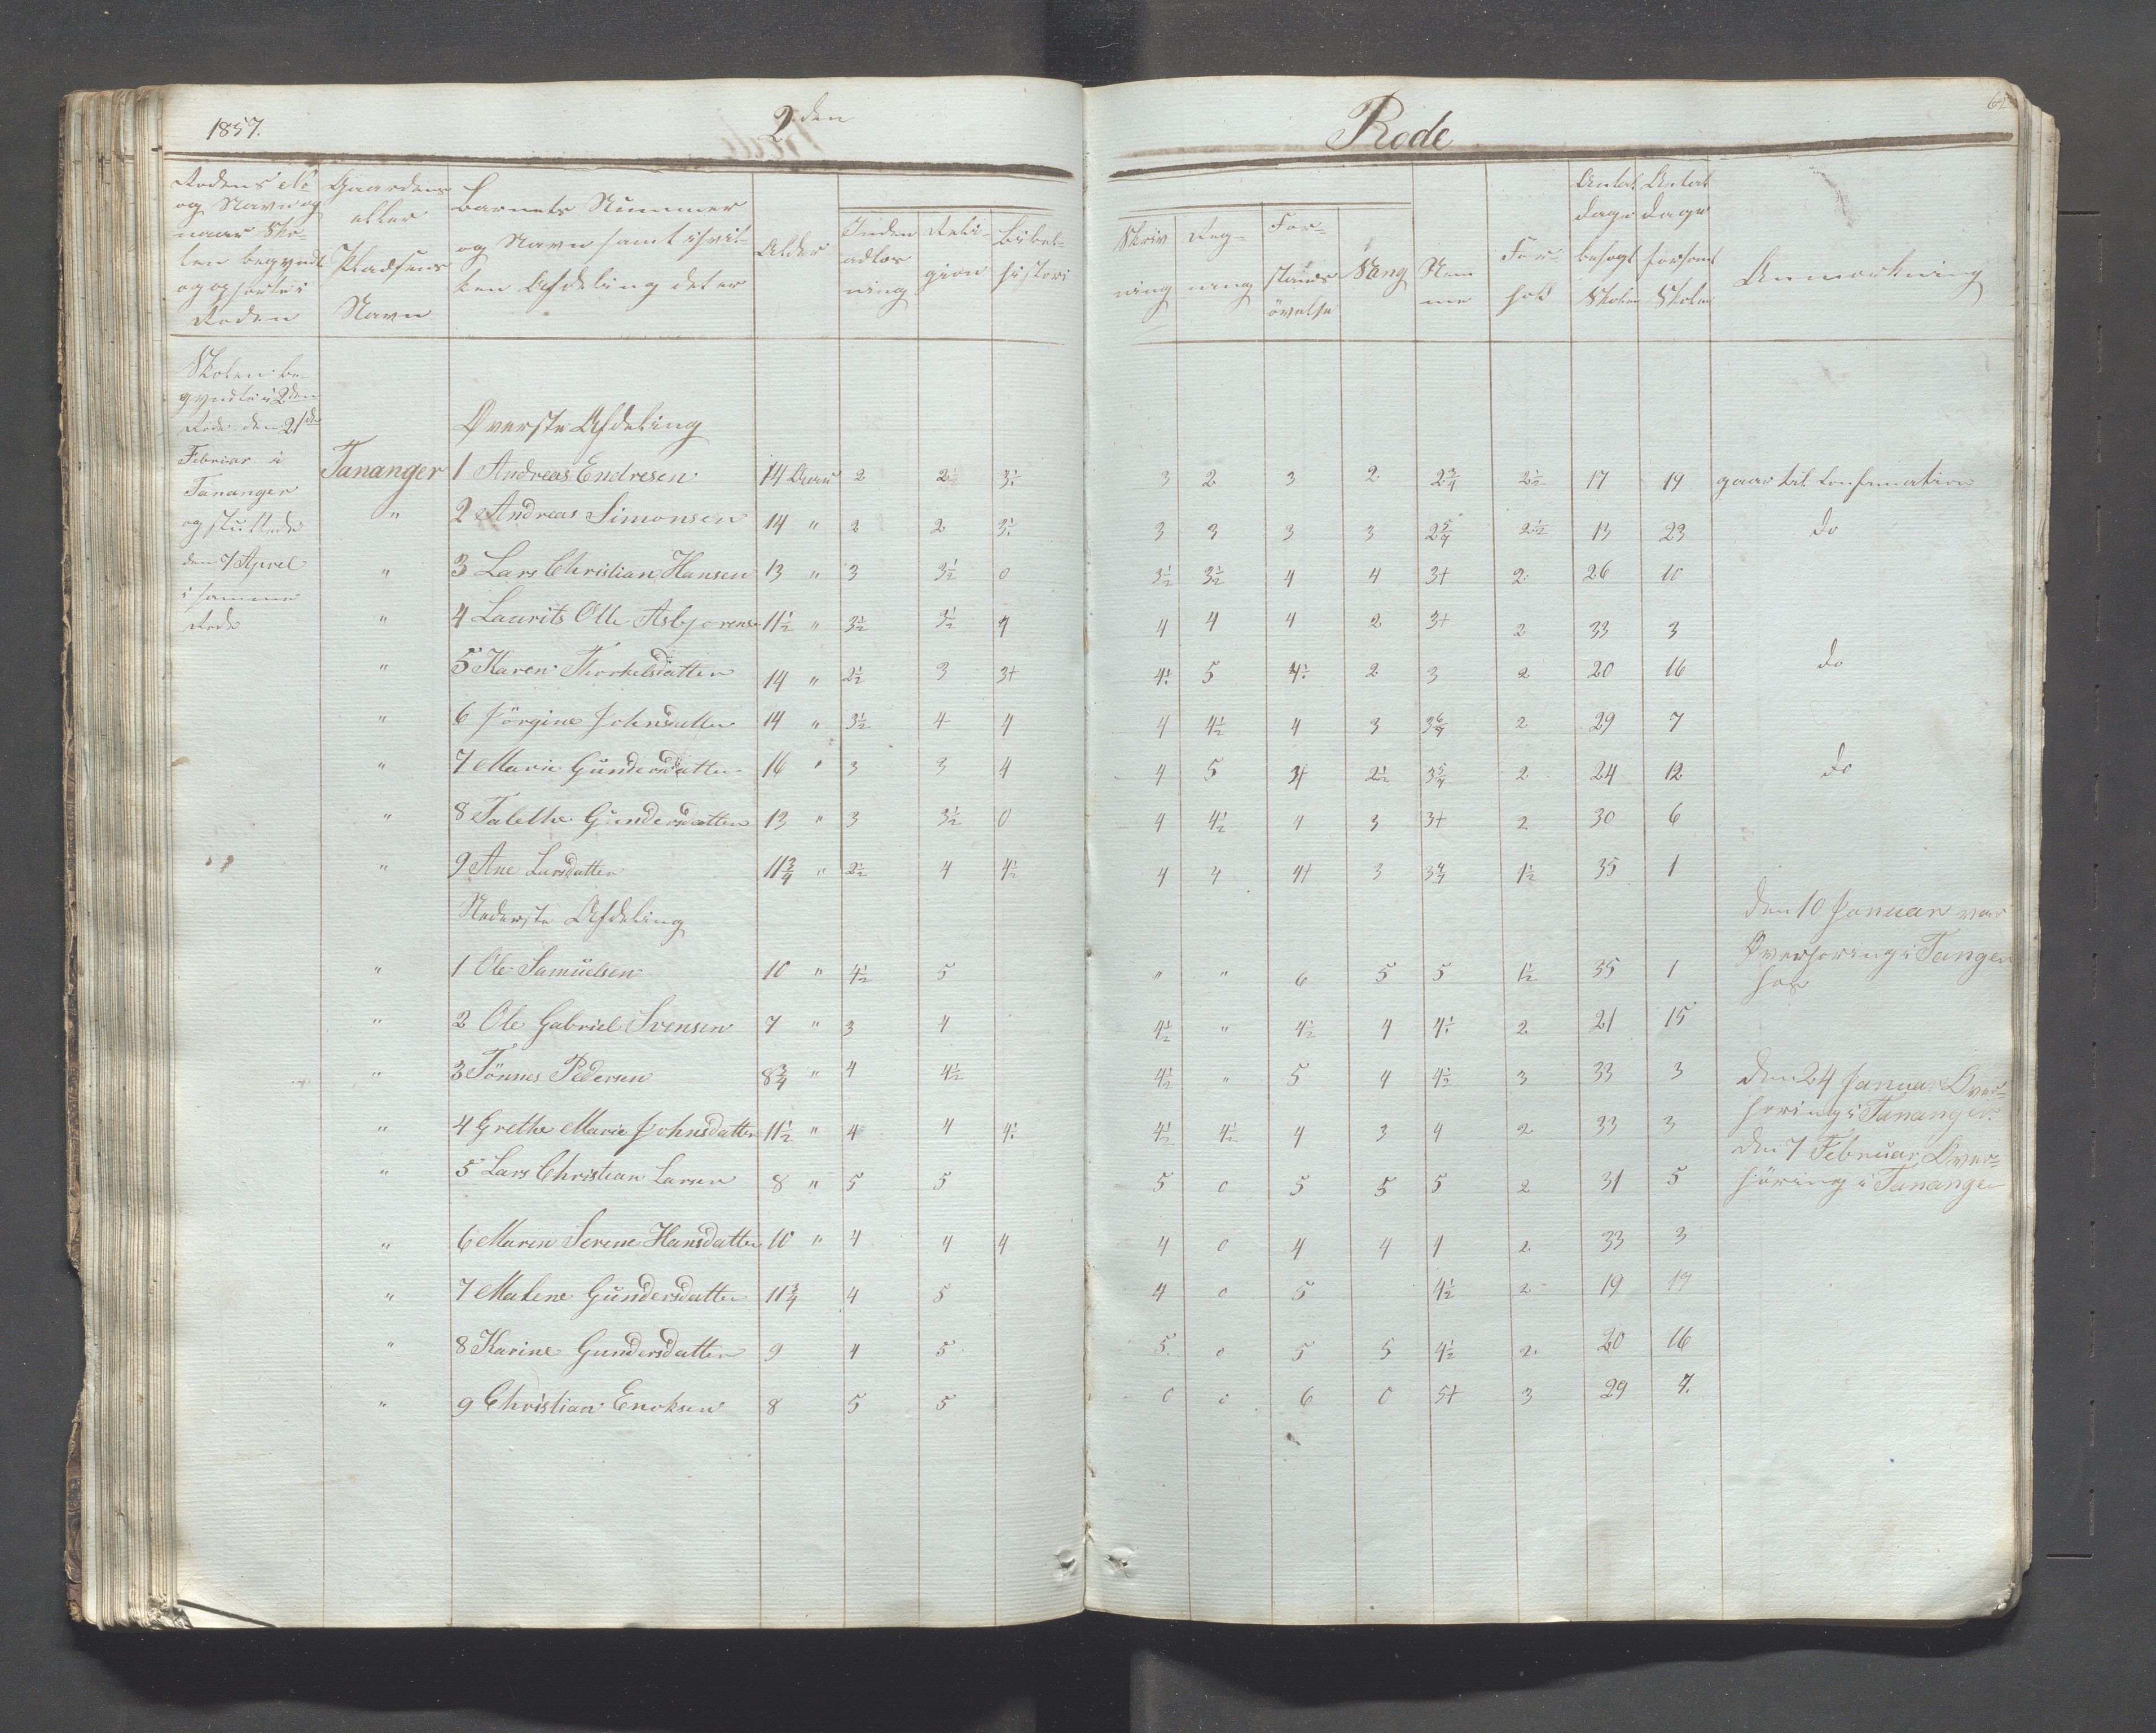 1857.
2den
Rode
Rodens No
og Navn og
naar Sko-
len begyndt
og ophørte i
Roden
Gaardens
eller
Pladsens
Navn
Barnets Nummer
og Navn samt i hvil-
ken Afdeling det er
Alder
Inden
adlæs
ning
Reli-
gion
Bibel-
histori
Skriv
ning
Reg-
ning
For-
stands
øvelse
Sang
Nem
me
For-
hold
Antal
Dage
besøgt
Skolen
Antal
Dage
forsømt
Skolen
Anmærkning
Skolen be-
gyndte i 2den
Rode den 21de
Februar i
Tananger
og sluttede
den 7 April
i samme
Rode
Øverste Afdeling
Tananger 1 Andreas Endresen 14 Aar 2 2½ 3½ 3 2 3 2 2¾ 2½ 17 19 gaar til Confirmation
" 2 Andreas Simonsen 14 " 2 2 3½ 3 3 3 3 2 5/7 2½ 13 23 do
" 3 Lars Christian Hansen 13 " 3 3½ 0 3½ 3½ 4 4 3+ 2 26 10
" 4 Laurits Olle Asbjørensen 11½ " 3½ 3½ 4 4 4 4 2 3+ 2 33 3
" 5 Karen Thorkelsdatter 14 " 2½ 3 3+ 4½ 5 4½ 2 3 2 20 16 do
" 6 Jörgine Johnsdatter 14 " 3½ 4 4 4 4½ 4 3 3 6/7 2 29 7
" 7 Marie Gundersdatter 16 " 3 3 4 4 5 3+ 2½ 3 5/7 2 24 12 do
" 8 Talethe Gundersdatter 13 " 3 3½ 0 4 4½ 4 3 3+ 2 30 6
" 9 Ane Larsdatter 11¾ " 2½ 4 4½ 4 4 4+ 3 3 4/7 1½ 35 1
Nederste Afdeling
den 10 Januar var
Overhøring i Tangen
hos
" 1 Ole Samuelsen 10 " 4½ 5 " " 6 5 5 1½ 35 1
" 2 Ole Gabriel Svensen 7 " 3 4 4½ " 4½ 4 4½ 2 21 15
" 3 Tönnes Pedersen 8¾ " 4 4½ 4½ " 5 4 4½ 3 33 3
den 24 Januar Over-
høring i Tananger.
" 4 Grethe Marie Johnsdatter 11½ " 4 4 4½ 4½ 4½ 4 3 4 2 33 3
den 7 Februar Over-
höring i Tananger
" 5 Lars Christian Larsen 8 " 5 5 5 0 5 5 5 2 31 5
" 6 Maren Serene Hansdatter 10 " 4 4 4 4 0 4 4 4 2 33 3
" 7 Malene Gundersdatter 11¾ 4 5 4 0 5 4½ 2 19 17
" 8 Karine Gundersdatter 9 4 5 5 0 5 5 4½ 2 20 16
" 9 Christian Enoksen 8 5 5 0 0 6 0 5+ 3 29 7